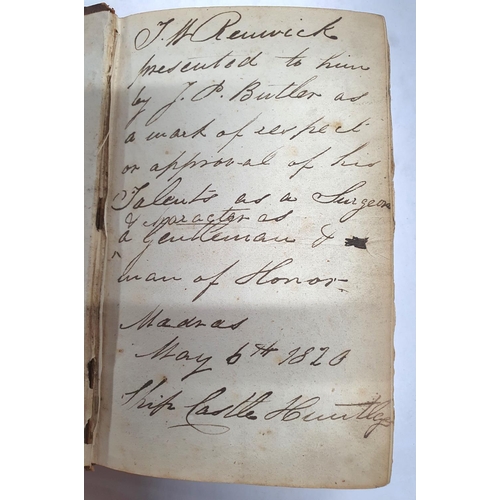 T W Renwick
presented to him
by J. P. Butler as
a mark of respect
or approval of his
Talents as a Surgeon
& caracter as
a Gentleman &
^ man of Honor
Madras
May 6th 1820
Ship Castle Huntly